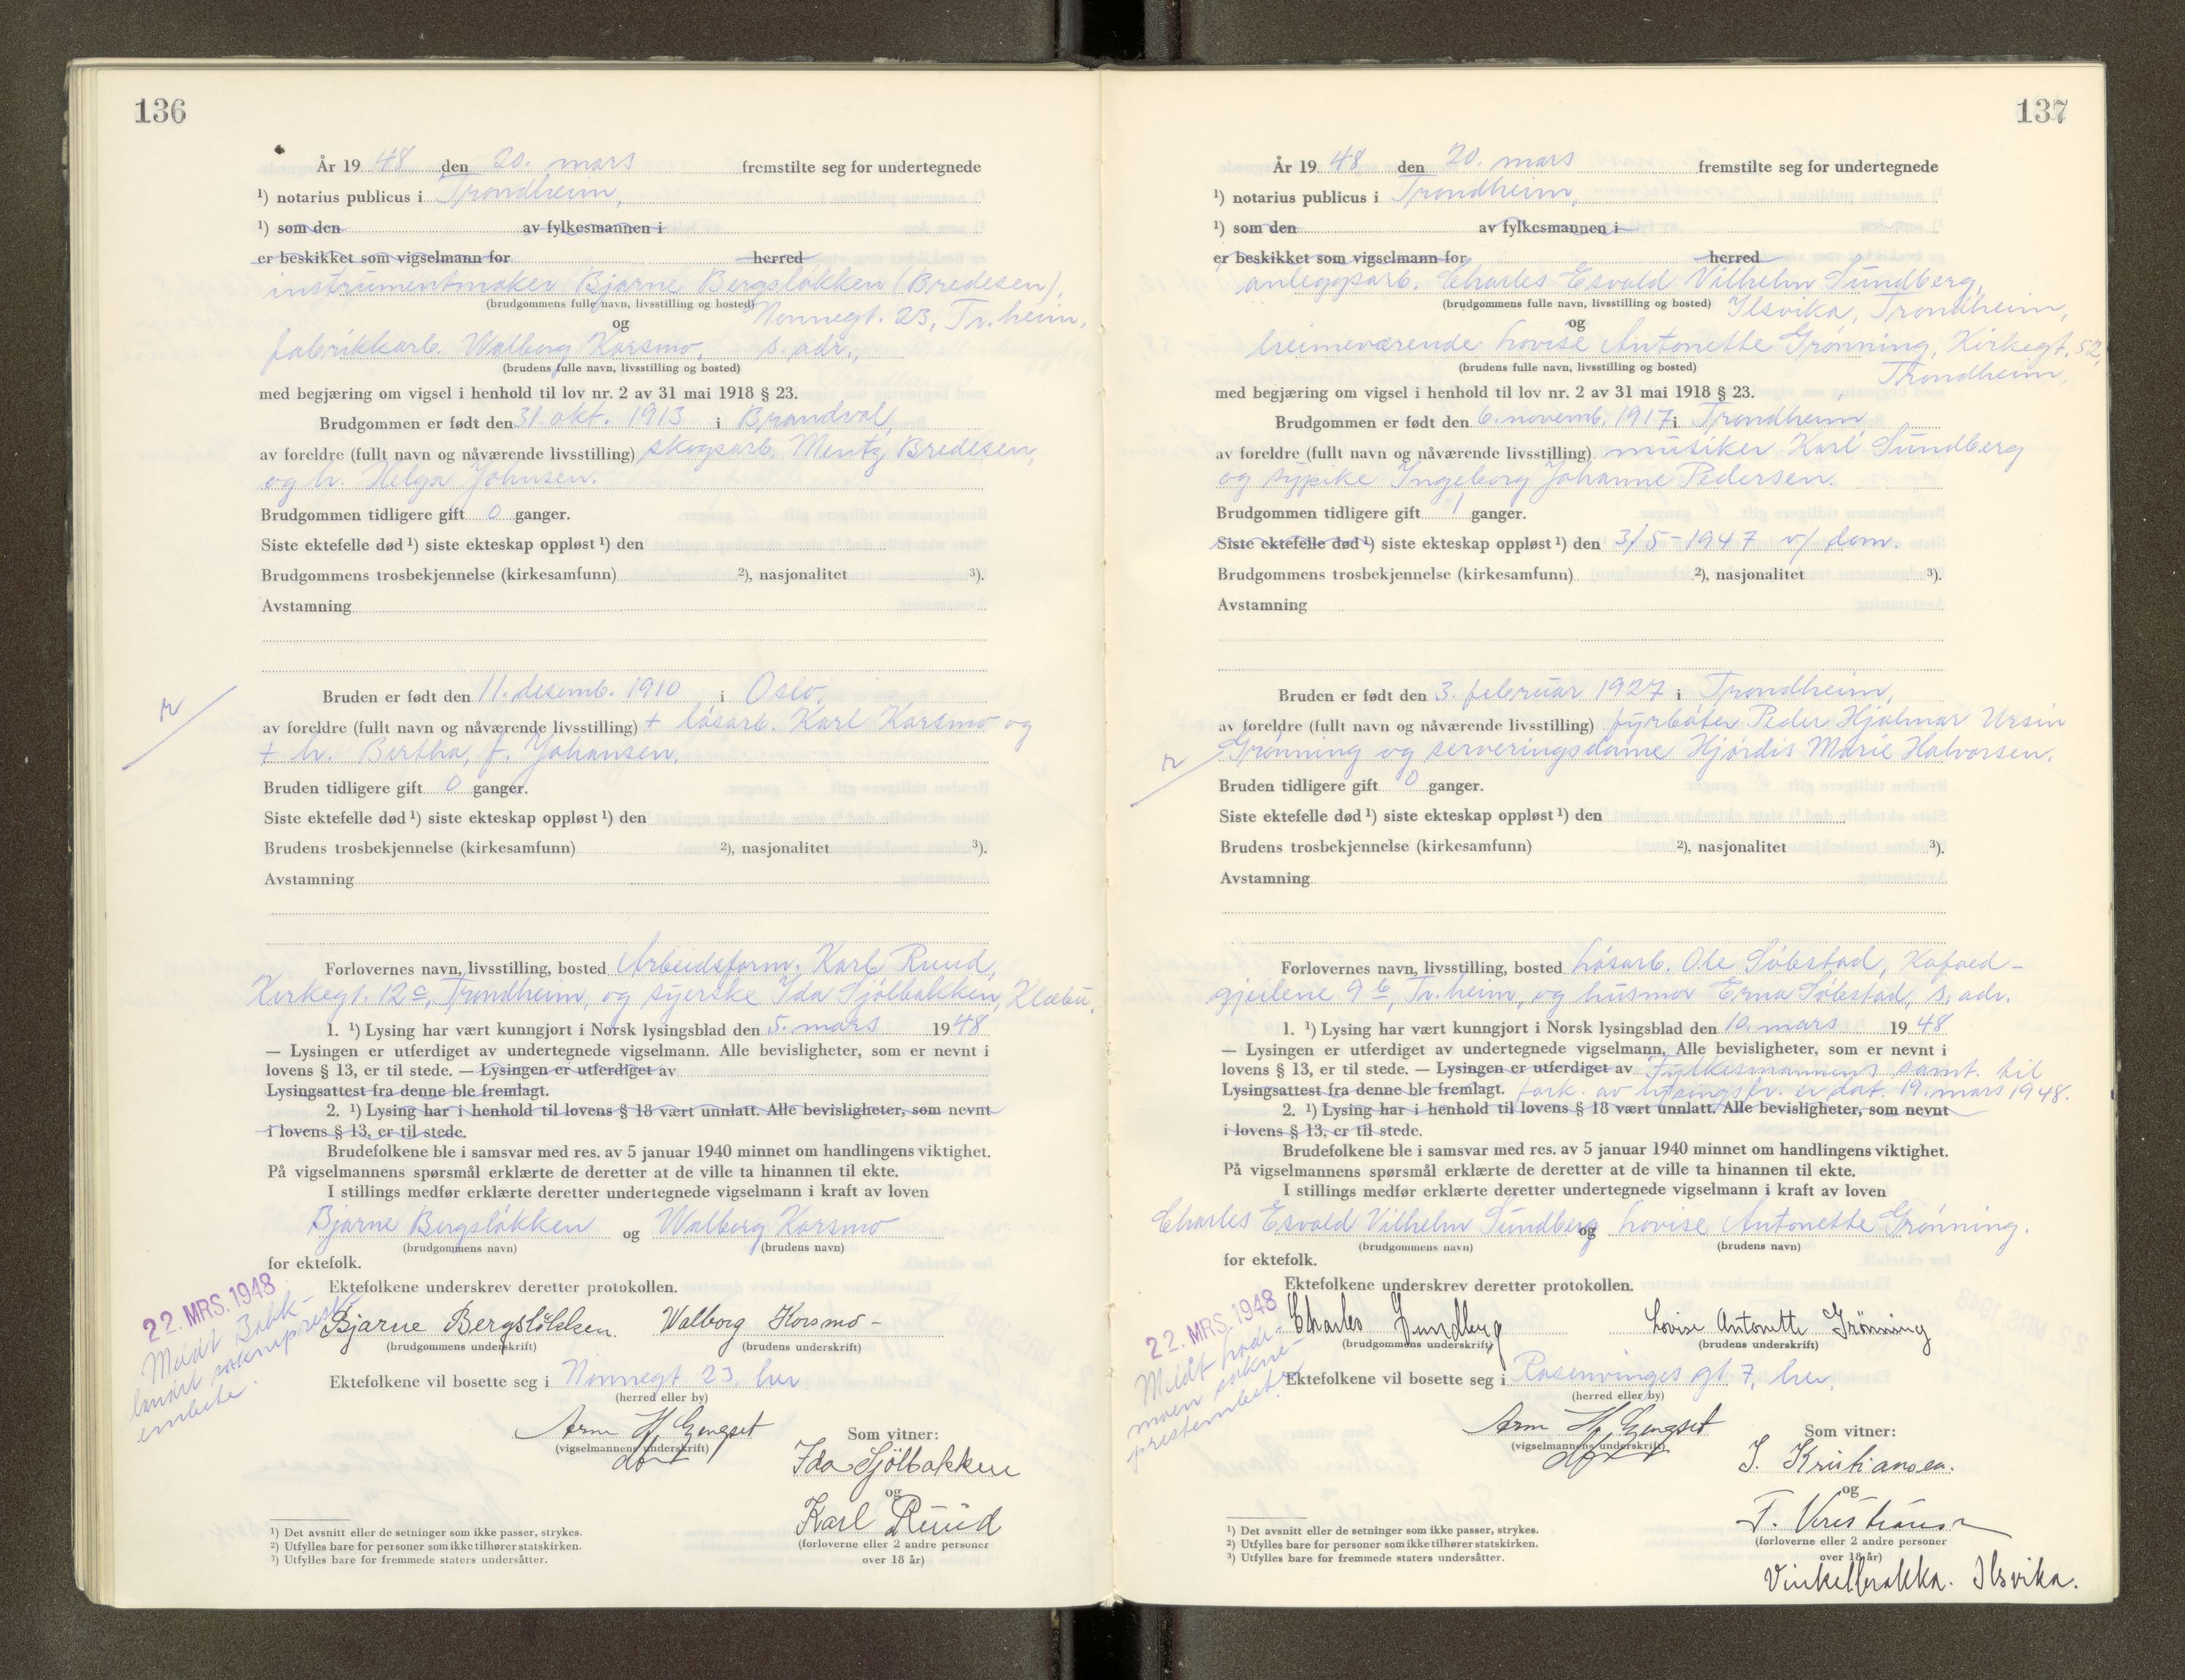 136
År 1948 den 20. mars fremstilte seg for undertegnede
¹) notarius publicus i Trondheim,
¹) som den av fylkesmannen i
er beskikket som vigselmann for herred
instrumentmaker Bjarne Bergsløkken (Bredesen),
(brudgommens fulle navn, livsstilling og bosted) Nonnegt. 23, Tr.heim,
og
fabrikkarb. Walborg Korsmo, s. adr.,
(brudens fulle navn, livsstilling og bosted)
med begjæring om vigsel i henhold til lov nr. 2 av 31 mai 1918 § 23.
Brudgommen er født den 31. okt. 1913 i Brandval,
av foreldre (fullt navn og nåværende livsstilling) skogsarb. Mentz Bredesen,
og h. Helga Johnsen.
Brudgommen tidligere gift 0 ganger.
Siste ektefelle død ¹) siste ekteskap oppløst ¹) den
Brudgommens trosbekjennelse (kirkesamfunn) ²), nasjonalitet ³).
Avstamning
Bruden er født den 11. desemb. 1910 i Oslo,
av foreldre (fullt navn og nåværende livsstilling) + løsarb. Karl Korsmo og
+ h. Bertha, f. Johansen.
Bruden tidligere gift 0 ganger.
Siste ektefelle død ¹) siste ekteskap oppløst ¹) den
Brudens trosbekjennelse (kirkesamfunn) ²), nasjonalitet ³).
Avstamning
Forlovernes navn, livsstilling, bosted Arbeidsform. Karl Ruud,
Kirkegt. 12 c, Trondheim, og syerske Ida Sjølbakken, Klæbu.
1. ¹) Lysing har vært kunngjort i Norsk lysingsblad den 5. mars 1948
— Lysingen er utferdiget av undertegnede vigselmann. Alle bevisligheter, som er nevnt i
lovens § 13, er til stede. — Lysingen er utferdiget av
Lysingsattest fra denne ble fremlagt.
2. ¹) Lysing har i henhold til lovens § 18 vært unnlatt. Alle bevisligheter, som nevnt
i lovens § 13, er til stede.
Brudefolkene ble i samsvar med res. av 5 januar 1940 minnet om handlingens viktighet.
På vigselmannens spørsmål erklærte de deretter at de ville ta hinannen til ekte.
I stillings medfør erklærte deretter undertegnede vigselmann i kraft av loven
Bjarne Bergsløkken og Walborg Korsmo
(brudgommens navn) (brudens navn)
for ektefolk.
Ektefolkene underskrev deretter protokollen.
22. MRS. 1948
Meldt Bakklandet sokneprestembete.
Bjarne Bergsløkken. Walborg Korsmo -
(brudgommens underskrift) (brudens underskrift)
Ektefolkene vil bosette seg i Nonnegt. 23, her
(herred eller by)
(vigselmannens underskrift)
Som vitner:
Ida Sjölbakken
og
Karl Ruud
(forloverne eller 2 andre personer
over 18 år)
¹) Det avsnitt eller de setninger som ikke passer, strykes.
²) Utfylles bare for personer som ikke tilhører statskirken.
³) Utfylles bare for fremmede staters undersåtter.
137
År 1948 den 20. mars fremstilte seg for undertegnede
¹) notarius publicus i Trondheim,
¹) som den av fylkesmannen i
er beskikket som vigselmann for herred
anleggsarb. Charles Esvald Vilhelm Sundberg,
(brudgommens fulle navn, livsstilling og bosted) Ilsvika, Trondheim,
og
heimeværende Lovise Antonette Grønning, Kirkegt. 52,
(brudens fulle navn, livsstilling og bosted) Trondheim,
med begjæring om vigsel i henhold til lov nr. 2 av 31 mai 1918 § 23.
Brudgommen er født den 6. novemb. 1917 i Trondheim,
av foreldre (fullt navn og nåværende livsstilling) musiker Karl Sundberg
og sypike Ingeborg Johanne Pedersen.
Brudgommen tidligere gift 1 ganger.
Siste ektefelle død ¹) siste ekteskap oppløst ¹) den 3/5-1947 v/ dom.
Brudgommens trosbekjennelse (kirkesamfunn) ²), nasjonalitet ³).
Avstamning
Bruden er født den 3. februar 1927 i Trondheim,
av foreldre (fullt navn og nåværende livsstilling) fyrbøter Peder Hjalmar Ursin
Grønning og serveringsdame Hjørdis Marie Halvorsen.
Bruden tidligere gift 0 ganger.
Siste ektefelle død ¹) siste ekteskap oppløst ¹) den
Brudens trosbekjennelse (kirkesamfunn) ²), nasjonalitet ³).
Avstamning
Forlovernes navn, livsstilling, bosted Løsarb. Ole Søbstad, Kafoed-
gjeilene 9 b, Tr.heim, og husmor Erna Søbstad, s. adr.
1. ¹) Lysing har vært kunngjort i Norsk lysingsblad den 10. mars 1948
— Lysingen er utferdiget av undertegnede vigselmann. Alle bevisligheter, som er nevnt i
lovens § 13, er til stede. — Lysingen er utferdiget av Fylkesmannens samt. til
Lysingsattest fra denne ble fremlagt. fork. av lysingsfr. er dat. 19. mars 1948.
2. ¹) Lysing har i henhold til lovens § 18 vært unnlatt. Alle bevisligheter, som nevnt
i lovens § 13, er til stede.
Brudefolkene ble i samsvar med res. av 5 januar 1940 minnet om handlingens viktighet.
På vigselmannens spørsmål erklærte de deretter at de ville ta hinannen til ekte.
I stillings medfør erklærte deretter undertegnede vigselmann i kraft av loven
Charles Esvald Vilhelm Sundberg og Lovise Antonette Grønning.
(brudgommens navn) (brudens navn)
for ektefolk.
Ektefolkene underskrev deretter protokollen.
22. MRS. 1948
Meldt Lademoen sokneprestembete.
Charles Sundberg Lovise Antonette Grønning
(brudgommens underskrift) (brudens underskrift)
Ektefolkene vil bosette seg i Rosenvinges gt. 7, her.
(herred eller by)
(vigselmannens underskrift)
Som vitner:
J. Kristiansen.
og
F. Kristiansen
(forloverne eller 2 andre personer
over 18 år)
Vinkelbrakka. Ilsvika.
¹) Det avsnitt eller de setninger som ikke passer, strykes.
²) Utfylles bare for personer som ikke tilhører statskirken.
³) Utfylles bare for fremmede staters undersåtter.